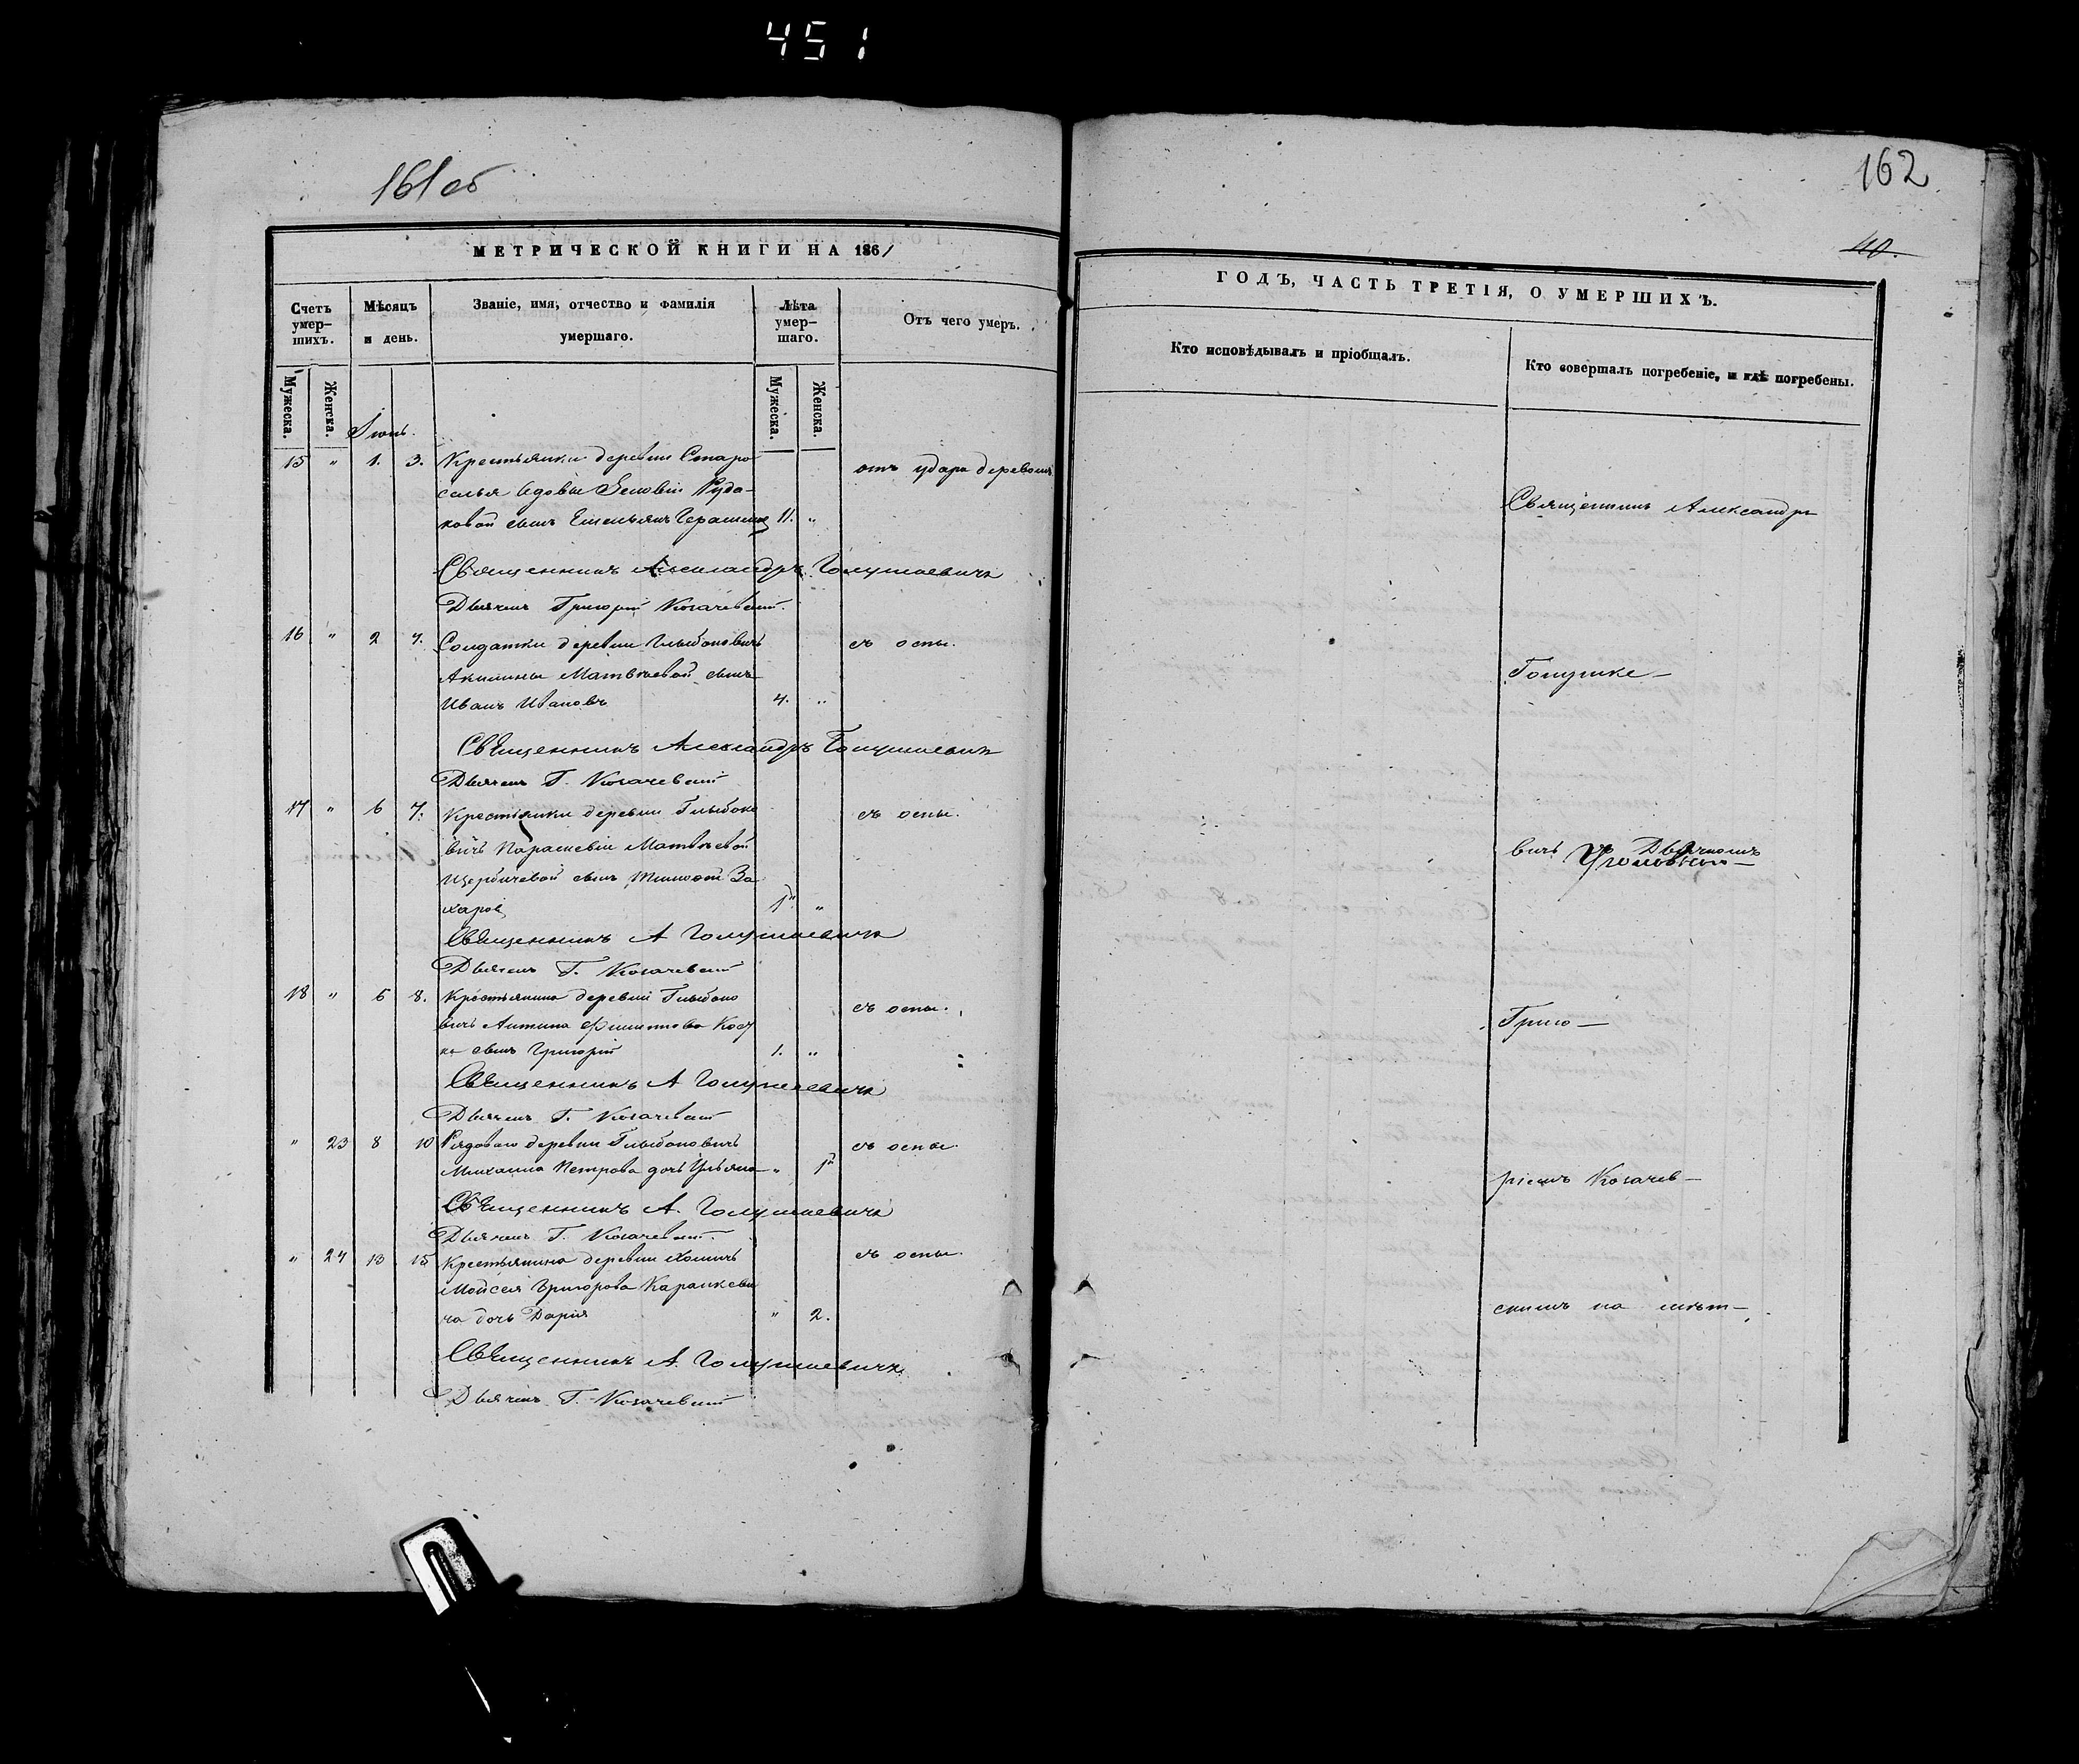 451
161 об
МЕТРИЧЕСКОЙ КНИГИ НА 1861
Счетъ умер-
шихъ.
Мѣсяцъ
и день.
Званіе, имя, отчество и фамилія
умершаго.
Лѣта
умер-
шаго.
Отъ чего умеръ.
Мужеска.
Женска.
Мужеска.
Женска.
Іюнь.
15 " 1. 3. Крестьянки деревни Старо
селья вдовы Зеновіи Руда-
ковой сынъ Емельянъ 11. "
отъ удара деревомъ
Священникъ Александръ Голушкевичъ
Дьячекъ Григорій Козачевскій.
16 " 2 4. Солдатки деревни Глыбоковичъ
Акилины Матвѣевой сынъ
Иванъ Ивановъ 4. "
съ оспы.
Священникъ Александръ Голушкевичъ
Дьячекъ Г. Козачевскій
17 " 6 7. Крестьянки деревни Глыбоко
вичъ Параскевіи Матвѣевой
сынъ Тимофей За
харовъ "
съ оспы.
Священникъ А Голушкевичъ
Дьячекъ Г. Козачевскій
18 " 6 8. Крестьянина деревни Глыбоко
вичъ Антона Филиппова
сынъ Григорій 1. "
съ оспы.
Священникъ А Голушкевичъ
Дьячекъ Г. Козачевскій
" 23 8 10 Рядоваго деревни Глыбоковичъ
Михаила Петрова дочь Ульяна "
съ оспы.
Священникъ А. Голушкевичъ
Дьячекъ Г. Козачевскій.
" 24 13 15 Крестьянина деревни
Мойсея Григорова
ча дочь Дарія " 2.
съ оспы.
Священникъ А. Голушкевичъ
Дьячекъ Г. Козачевскій
162
40.
ГОДЪ, ЧАСТЬ ТРЕТІЯ, О УМЕРШИХЪ.
Кто исповѣдывалъ и пріобщалъ.
Кто совершалъ погребеніе, и гдѣ погребены.
Священникъ Александръ
Голушке-
вичъ Дьячкомъ
Григо-
ріемъ Козачев-
скимъ на мѣст-